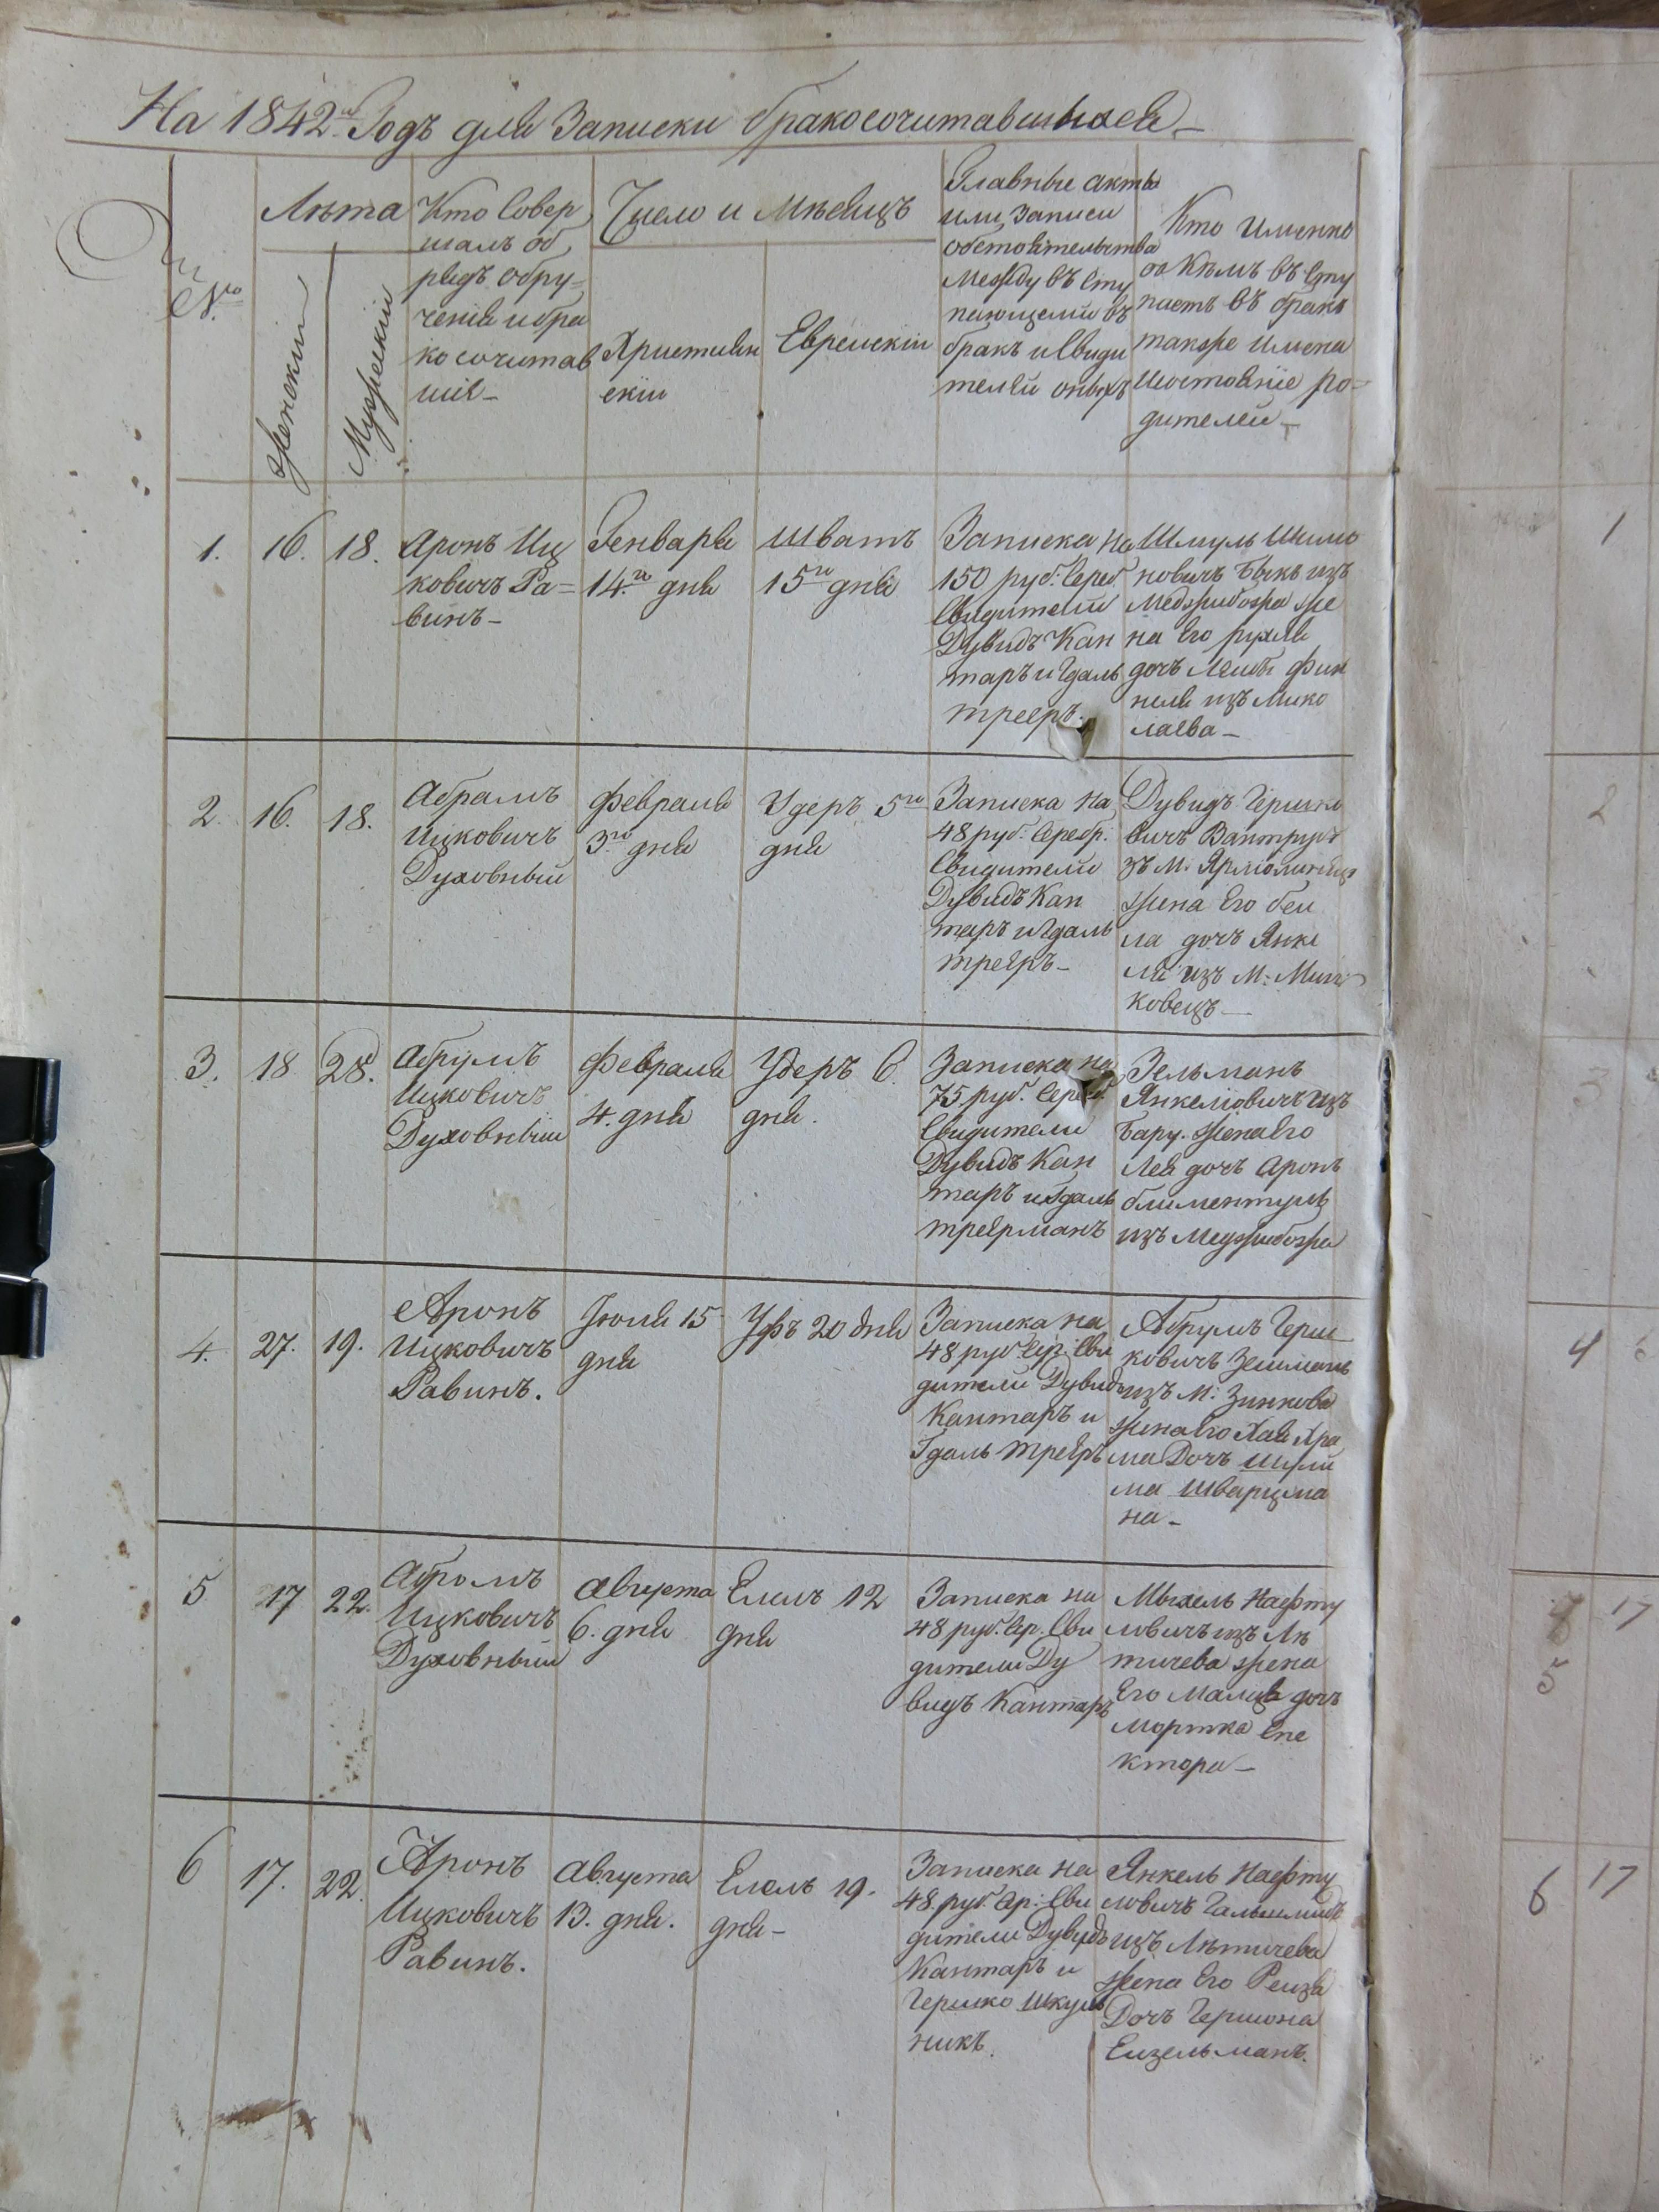 На 1842й Годъ для Записки бракосочитавшихся
№
Лѣта
Женскіи
Мужескіи
Кто Совер
шалъ об
рядъ обру=
ченія и бра
косочитав
шія
Число и Мѣсяцъ
Християн
скіи
Евреискіи
Главные акты
или записи
обстоятельства
Между въ Сту
пающеми въ
бракъ и Свиди
телей оныхъ
Кто Именно
съ Кѣмъ въ Сту
паетъ въ бракъ
также имена
и состояніе ро=
дителей
1.
16.
18.
Аронъ Иц
ковичъ Ра=
винъ
Генваря
14го дня
Шватъ
15го дня
Записка на
150 руб: Сереб
Свидители
Дувидъ Кан
таръ и Гдаль
трееръ.
Шмуль Шимо
новичъ Быкъ изъ
Меджибожа же
на Его рухля
дочъ Лейбы Фин
келя изъ Мико
лаева
2.
16.
18.
Абрамъ
Ицковичъ
Духовный
Февраля
3го дня
Удеръ 5го
дня
Записка на
48 руб: Серебр.
Свидители
Дувидъ Кан
таръ и Гдаль
трееръ
Дувидъ Гершко
вичъ
зъ М: Ярмолинецъ
жена Его беи
ла дочъ Янке
ля изъ М: Мин
ковецъ
3.
18
28.
Абрумъ
Ицковичъ
Духовный
Февраля
4. дня
Удеръ 6.
дня.
Записка на
75 руб. Сереб.
Свидители
Дувидъ Кан
таръ и Гдаль
треерманъ
Зельманъ
Янкеліовичъ изъ
Бару. жена Его
Лея дочъ Аронъ
изъ Меджибожа
4.
27.
19.
Аронъ
Ицковичъ
Равинъ.
Іюля 15
дня
Уфъ 20 дня
Записка на
48 руб Сер: Сви
дители Дувидъ
Кантаръ и
Гдаль трееръ
Абрумъ Герш
ковичъ
изъ М: Зинкова
жена Его Хая Хра
ма Дочъ Шули
ма Шварцма
на
5
17
22.
Абромъ
Ицковичъ
Духовный
Августа
6. дня
Елюль 12
дня
Записка на
48 руб. Сер. Сви
дители Ду
видъ Кантаръ
Мыхель Нафту
ловичъ изъ Лѣ
тичева жена
Его Малця дочъ
Мортка Спе
ктора
6
17.
22.
Аронъ
Ицковичъ
Равинъ.
Августа
13. дня.
Елюль 19.
дня
Записка на
48. руб. Ср: Сви
дители Дувидъ
Кантаръ и
Гершко Шкуль
никъ.
Янкель Нафту
ловичъ Гальшмидъ
изъ Лѣтичева
жена Его Реиза
Дочъ Гершона
Еизельманъ.
1
2
3
4 6
17
5
6 17